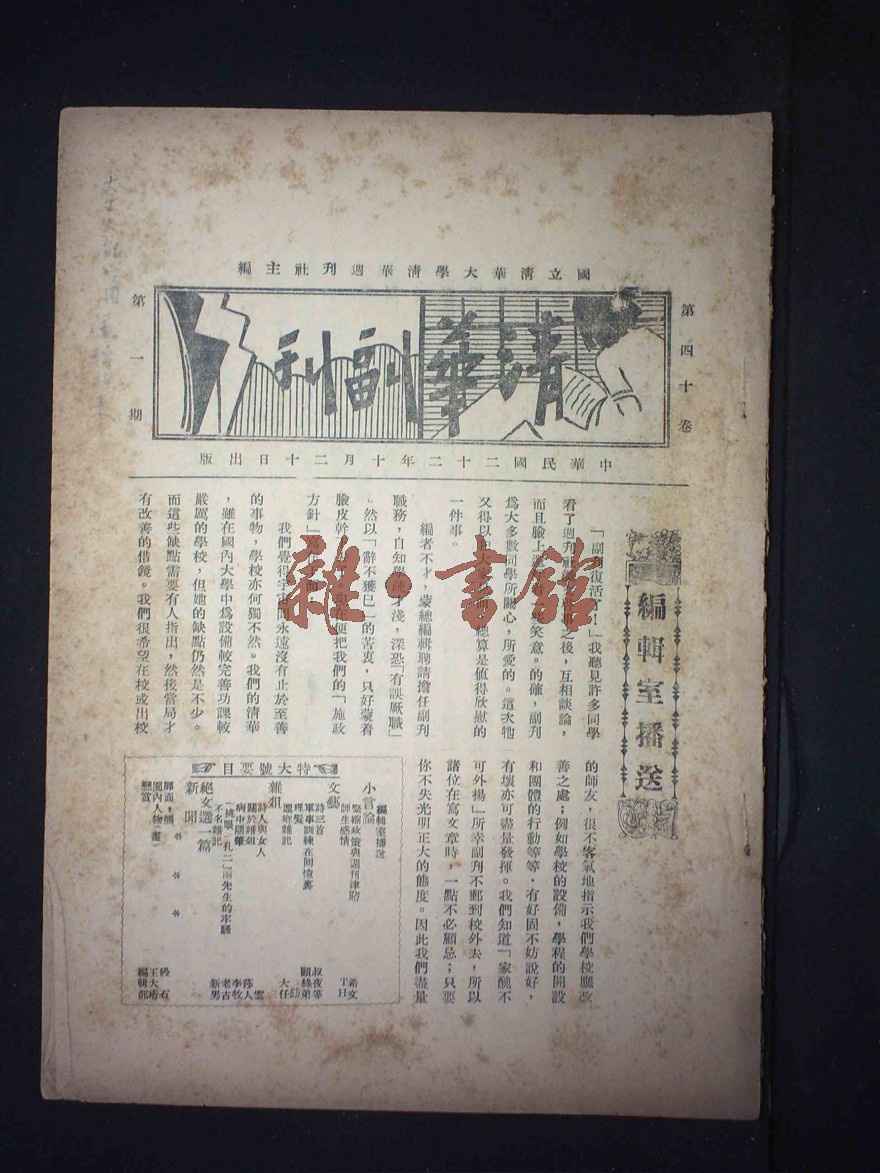 國立淸華大學淸華週刋社主編
第四十卷
清華副刋
第一期
中華民國二十二年十月二十日出版
編輯室播送
「副刋復活了！」我聽見許多同學
看了週刋之後，互相談論，
而且臉上笑意。的確，副刋
爲大多數同學所關心，所愛的。這次牠
又得以總算是値得欣慰的
一件事。
編者不才，蒙總編輯聘請擔任副刋
職務，自知學才淺，深恐「有誤厥職」
。然以「辭不獲已」的苦衷，只好蒙着
臉皮幹便把我們的「施政
方針」
我們覺得宇宙間永遠沒有止於至善
的事物，學校亦何獨不然。我們的淸華
，雖在國內大學中爲設備較完善功課較
嚴厲的學校，但她的缺點仍然是不少。
而這些缺點需要有人指出，然後當局才
有改善的借鏡。我們很希望在校或出校
的師友，很不客氣地指示我們學校應改
善之處；例如學校的設備，學程的開設
和團體的行動等等，有好固不妨說好，
有壞亦可盡量發揮。我們知道「家醜不
可外揚」所幸副刋不郵到校外去，所以
諸位在寫文章時，一點不必顧忌；只要
你不失光明正大的態度。因此我們盡量
特大號要目
編輯室播送
小言論
緊縮政策與週刋津貼 希文
師生感情 TH
文藝
詩三首 叔夜等
軍事訓練在回憶裏 顧綠弟
理髮
還鄉雜記 大任
雜俎
詩人與女人 雲
關於雜俎 莎人
病中隨筆 李牧
「挑戰」孔二兩先生的牢騷 老古
不名雜記 新男
絕文選一篇
新聞
扉面，題 毀石
園內人物畫 王大雨
懸賞 編輯部
雜·書館